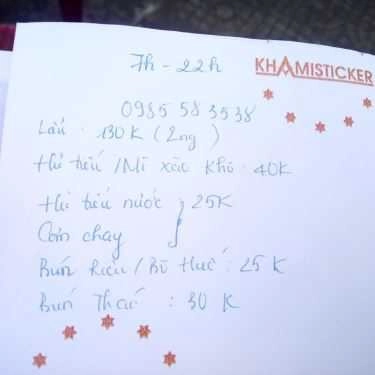 7h - 22h
KHAMISTICKER
0985 58 3538
Lẩu : 130K (2ng)
Hủ tiếu /Mì xào khô : 40K
Hủ tiếu nước ; 25K
Cơm chay
Bún Riêu / Bò Huế : 25 K
Bún Thái : 30 K